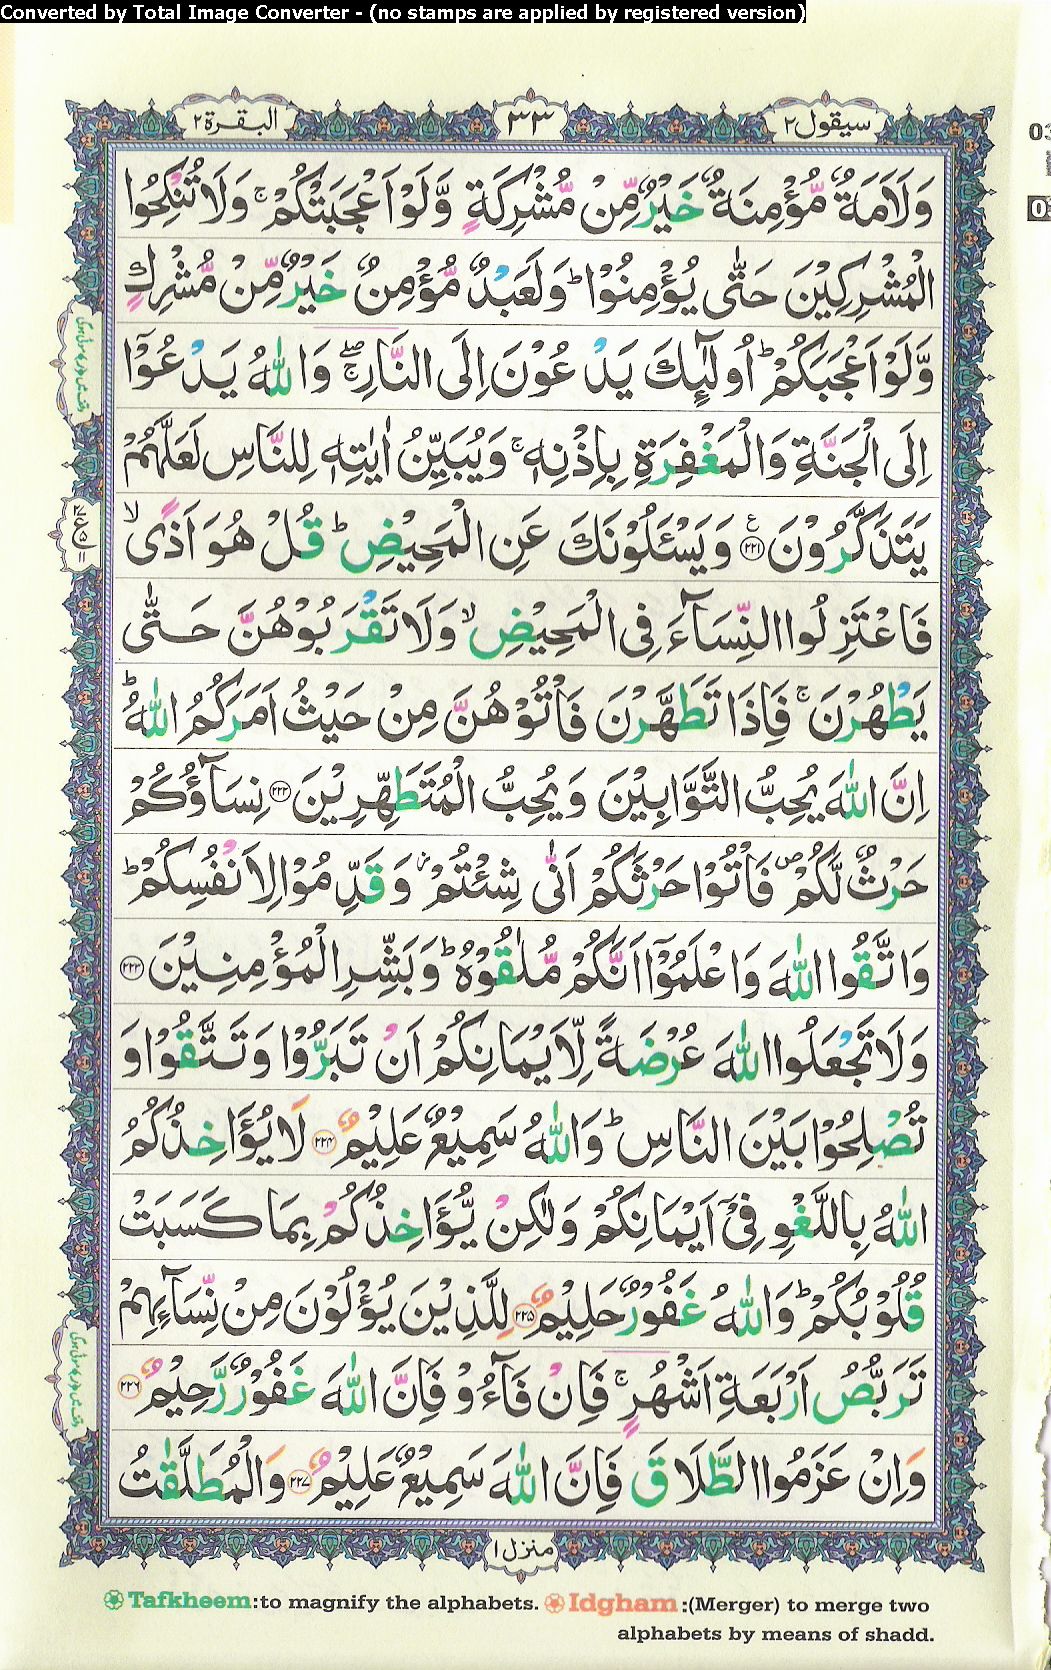 Converted by Total Image Converter - (no stamps are applied by registered version)
سيقول٢ ٣٣ البقرة٢
وَلَاَمَةٌ مُّؤْمِنَةٌ خَيْرٌ مِّنْ مُّشْرِكَةٍ وَّلَوْ اَعْجَبَتْكُمْ ۚ وَلَا تُنْكِحُوا
الْمُشْرِكِيْنَ حَتّٰى يُؤْمِنُوْا ؕ وَلَعَبْدٌ مُّؤْمِنٌ خَيْرٌ مِّنْ مُّشْرِكٍ
وَّلَوْ اَعْجَبَكُمْ ؕ اُولٰٓئِكَ يَدْعُوْنَ اِلَى النَّارِ ۖۚ وَاللّٰهُ يَدْعُوْٓا
اِلَى الْجَنَّةِ وَالْمَغْفِرَةِ بِاِذْنِهٖ ۚ وَيُبَيِّنُ اٰيٰتِهٖ لِلنَّاسِ لَعَلَّهُمْ
يَتَذَكَّرُوْنَ ﴿٢٢١﴾ ع وَيَسْـَٔلُوْنَكَ عَنِ الْمَحِيْضِ ؕ قُلْ هُوَ اَذًى ۙ
فَاعْتَزِلُوا النِّسَآءَ فِى الْمَحِيْضِ ۙ وَلَا تَقْرَبُوْهُنَّ حَتّٰى
يَطْهُرْنَ ۚ فَاِذَا تَطَهَّرْنَ فَاْتُوْهُنَّ مِنْ حَيْثُ اَمَرَكُمُ اللّٰهُ ؕ
اِنَّ اللّٰهَ يُحِبُّ التَّوَّابِيْنَ وَيُحِبُّ الْمُتَطَهِّرِيْنَ ﴿٢٢٢﴾ نِسَآؤُكُمْ
حَرْثٌ لَّكُمْ ۪ فَاْتُوْا حَرْثَكُمْ اَنّٰى شِئْتُمْ ؗ وَقَدِّمُوْا لِاَنْفُسِكُمْ ؕ
وَاتَّقُوا اللّٰهَ وَاعْلَمُوْٓا اَنَّكُمْ مُّلٰقُوْهُ ؕ وَبَشِّرِ الْمُؤْمِنِيْنَ ﴿٢٢٣﴾
وَلَا تَجْعَلُوا اللّٰهَ عُرْضَةً لِّاَيْمَانِكُمْ اَنْ تَبَرُّوْا وَتَتَّقُوْا وَ
تُصْلِحُوْا بَيْنَ النَّاسِ ؕ وَاللّٰهُ سَمِيْعٌ عَلِيْمٌ ﴿٢٢٤﴾ لَا يُؤَاخِذُكُمُ
اللّٰهُ بِاللَّغْوِ فِىْٓ اَيْمَانِكُمْ وَلٰكِنْ يُّؤَاخِذُكُمْ بِمَا كَسَبَتْ
قُلُوْبُكُمْ ؕ وَاللّٰهُ غَفُوْرٌ حَلِيْمٌ ﴿٢٢٥﴾ لِلَّذِيْنَ يُؤْلُوْنَ مِنْ نِّسَآءِهِمْ
تَرَبُّصُ اَرْبَعَةِ اَشْهُرٍ ۚ فَاِنْ فَآءُوْ فَاِنَّ اللّٰهَ غَفُوْرٌ رَّحِيْمٌ ﴿٢٢٦﴾
وَاِنْ عَزَمُوا الطَّلَاقَ فَاِنَّ اللّٰهَ سَمِيْعٌ عَلِيْمٌ ﴿٢٢٧﴾ وَالْمُطَلَّقٰتُ
منزل١
Tafkheem:to magnify the alphabets. Idgham:(Merger) to merge two
alphabets by means of shadd.